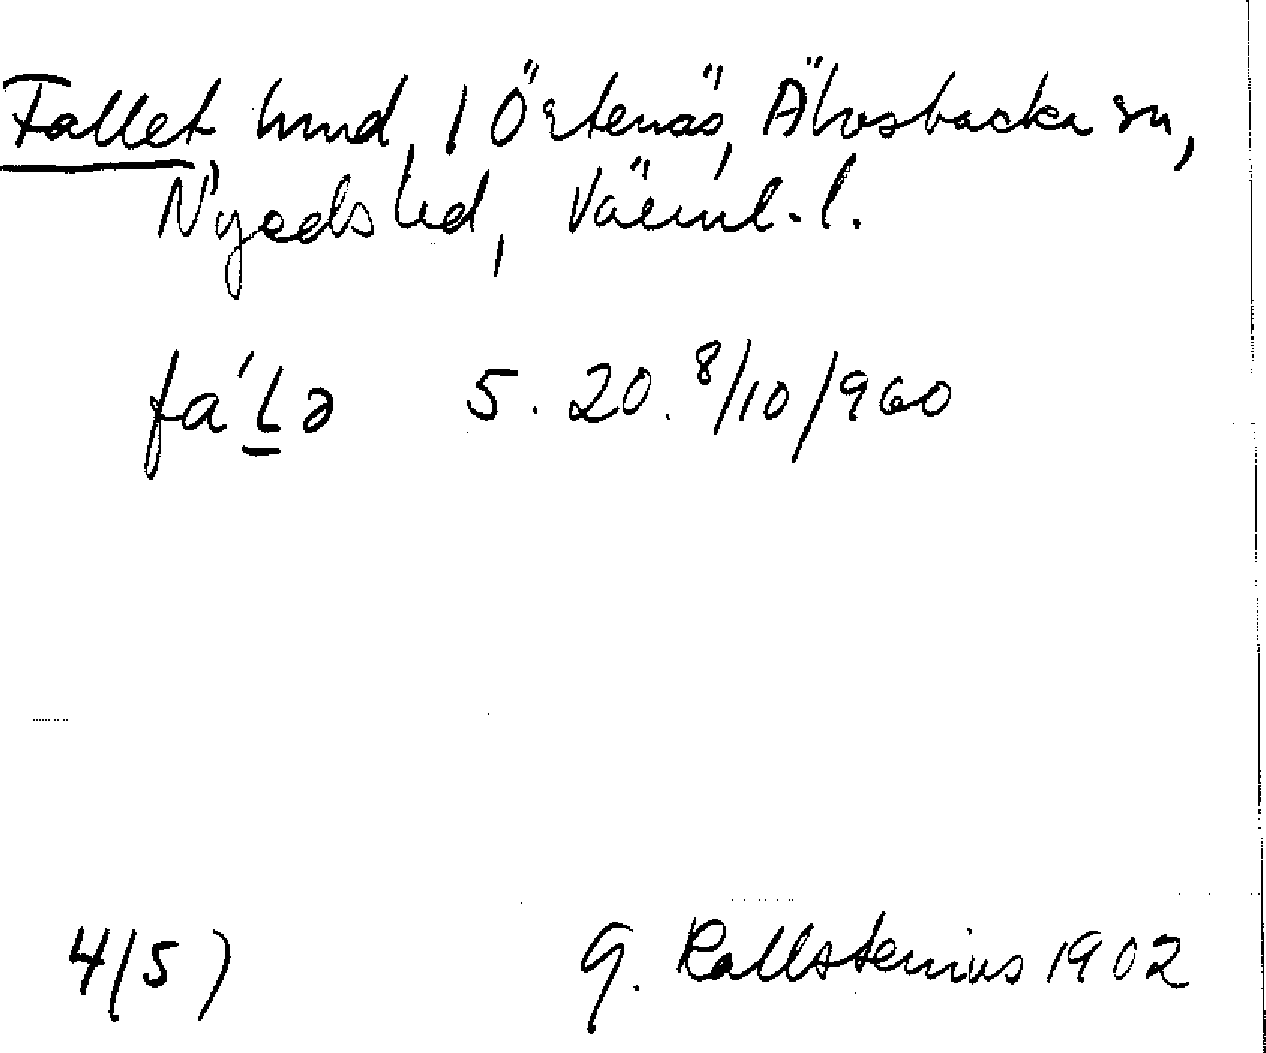 Fallet hmd, 1 Örtenäs, Älvsbacka sn,
Nyeds hd, Värml. l.
fa´Lə 5. 20. 8/10/960
4(5) G. Kallstenius 1902